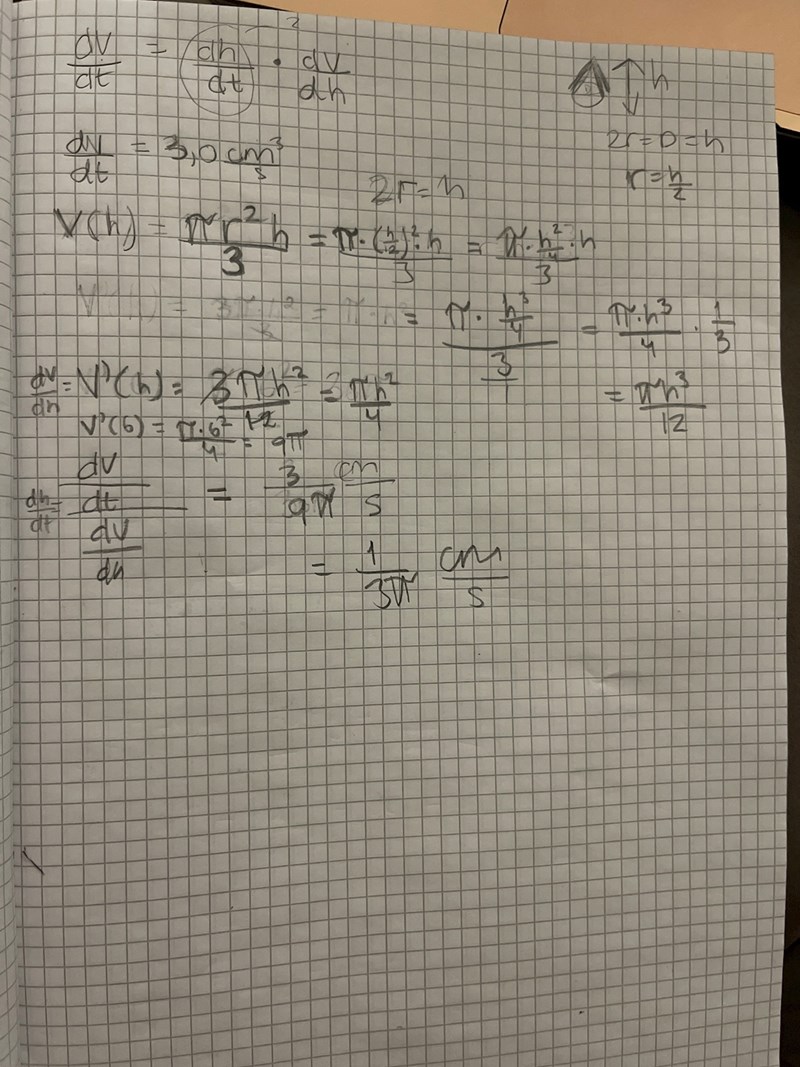 dV/dt = dh/dt · dV/dh
h
dV/dt = 3,0 cm³/s
2r = D = h
r = h/2
2r = h
V(h) = πr²h/3 = π·(h/2)²·h/3 = π·h²/4·h/3
= π·h³/4/3/1 = π·h³/4 · 1/3
= πh³/12
dV/dh = V'(h) = 3πh²/12 = πh²/4
V'(6) = π·6²/4 = 9π
dh/dt = dV/dt/dV/dh = 3/9π cm/s
= 1/3π cm/s